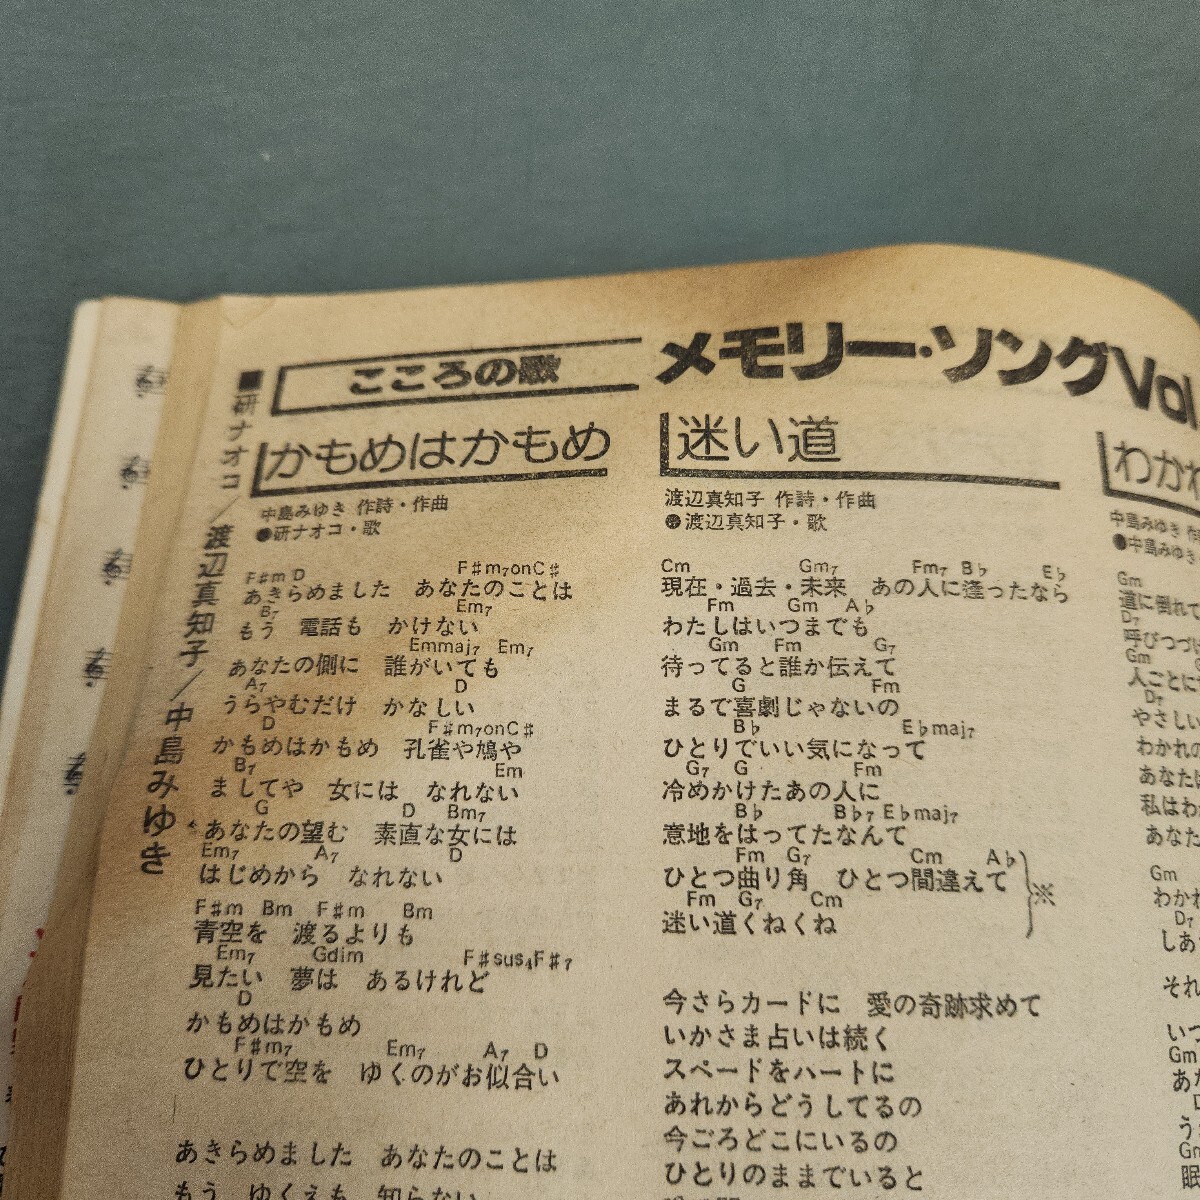 こころの歌
メモリー・ソングVol
■研ナオコ/渡辺真知子/中島みゆき
かもめはかもめ
中島みゆき 作詩・作曲
●研ナオコ・歌
F♯m D F♯m7onC♯
あきらめました あなたのことは
B7 Em7
もう 電話も かけない
Emmaj7 Em7
あなたの側に 誰がいても
A7 D
うらやむだけ かなしい
D F♯m7onC♯
かもめはかもめ 孔雀や鳩や
B7 Em
ましてや 女には なれない
G D Bm7
あなたの望む 素直な女には
Em7 A7 D
はじめから なれない
F♯m Bm F♯m Bm
青空を 渡るよりも
Em7 Gdim F♯sus4F♯7
見たい 夢は あるけれど
D
かもめはかもめ
F♯m7 Em7 A7 D
ひとりで空を ゆくのがお似合い
あきらめました あなたのことは
もう ゆくえも 知らない
迷い道
渡辺真知子 作詩・作曲
●渡辺真知子・歌
Cm Gm7 Fm7 B♭ E♭
現在・過去・未来 あの人に逢ったなら
Fm Gm A♭
わたしはいつまでも
Gm Fm G7
待ってると誰か伝えて
G Fm
まるで喜劇じゃないの
B♭ E♭maj7
ひとりでいい気になって
G7 G Fm
冷めかけたあの人に
B♭ B♭7 E♭maj7
意地をはってたなんて
Fm G7 Cm A♭
ひとつ曲り角 ひとつ間違えて
※
Fm G7 Cm
迷い道くねくね
今さらカードに 愛の奇跡求めて
いかさま占いは続く
スペードをハートに
あれからどうしてるの
今ごろどこにいるの
ひとりのままでいると
わかれ
中島みゆき 作
●中島みゆき
Gm
道に倒れて
D7
呼びつづけ
Gm
人ごとに
D7
やさしい
わかれの
あなたは
私はわか
あなた
Gm
わかれ
D7
しあ
それ
いつ
Gm
あな
D
う
Gm
眠